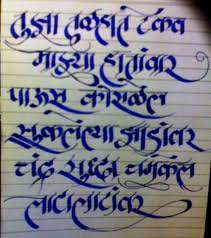 तुझा तळहात टेकव
माझ्या हातांवर
पाऊस कोसळेल
सुकलेल्या झाडांवर
चंद्र सुद्धा चमकेल
लाटालाटांवर